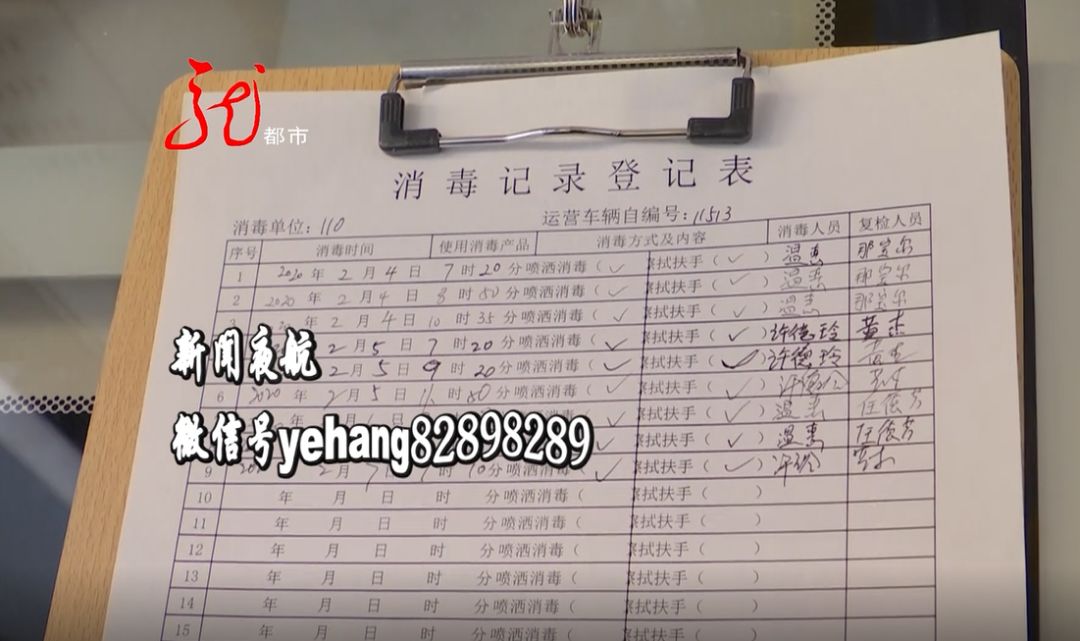 龙 都市
消毒记录登记表
消毒单位：110 运营车辆自编号：11513
序号 消毒时间 使用消毒产品 消毒方式及内容 消毒人员 复检人员
1 2020年2月4日7时20分喷洒消毒（✓ 擦拭扶手（✓） 温惠
2 2020年2月4日8时50分喷洒消毒（✓ 擦拭扶手（✓） 温惠
年2月4日10时35分喷洒消毒（✓ 擦拭扶手（✓） 温惠
2月5日7时20分喷洒消毒（✓ 擦拭扶手（✓） 许德玲 黄杰
新闻夜航
2月5日9时20分喷洒消毒（✓ 擦拭扶手（✓） 许德玲
6 2020年2月5日11时50分喷洒消毒（✓ 擦拭扶手（✓）
擦拭扶手（✓） 温惠
微信号yehang82898289
擦拭扶手（✓） 温惠
9 2月7日 时10分喷洒消毒（✓ 擦拭扶手（✓）
10 年 月 日 时 分喷洒消毒（ 擦拭扶手（ ）
11 年 月 日 时 分喷洒消毒（ 擦拭扶手（ ）
12 年 月 日 时 分喷洒消毒（ 擦拭扶手（ ）
13 年 月 日 时 分喷洒消毒（ 擦拭扶手（ ）
14 年 月 日 时 分喷洒消毒（ 擦拭扶手（ ）
15 年 月 日 时 分喷洒消毒（ 擦拭扶手（ ）